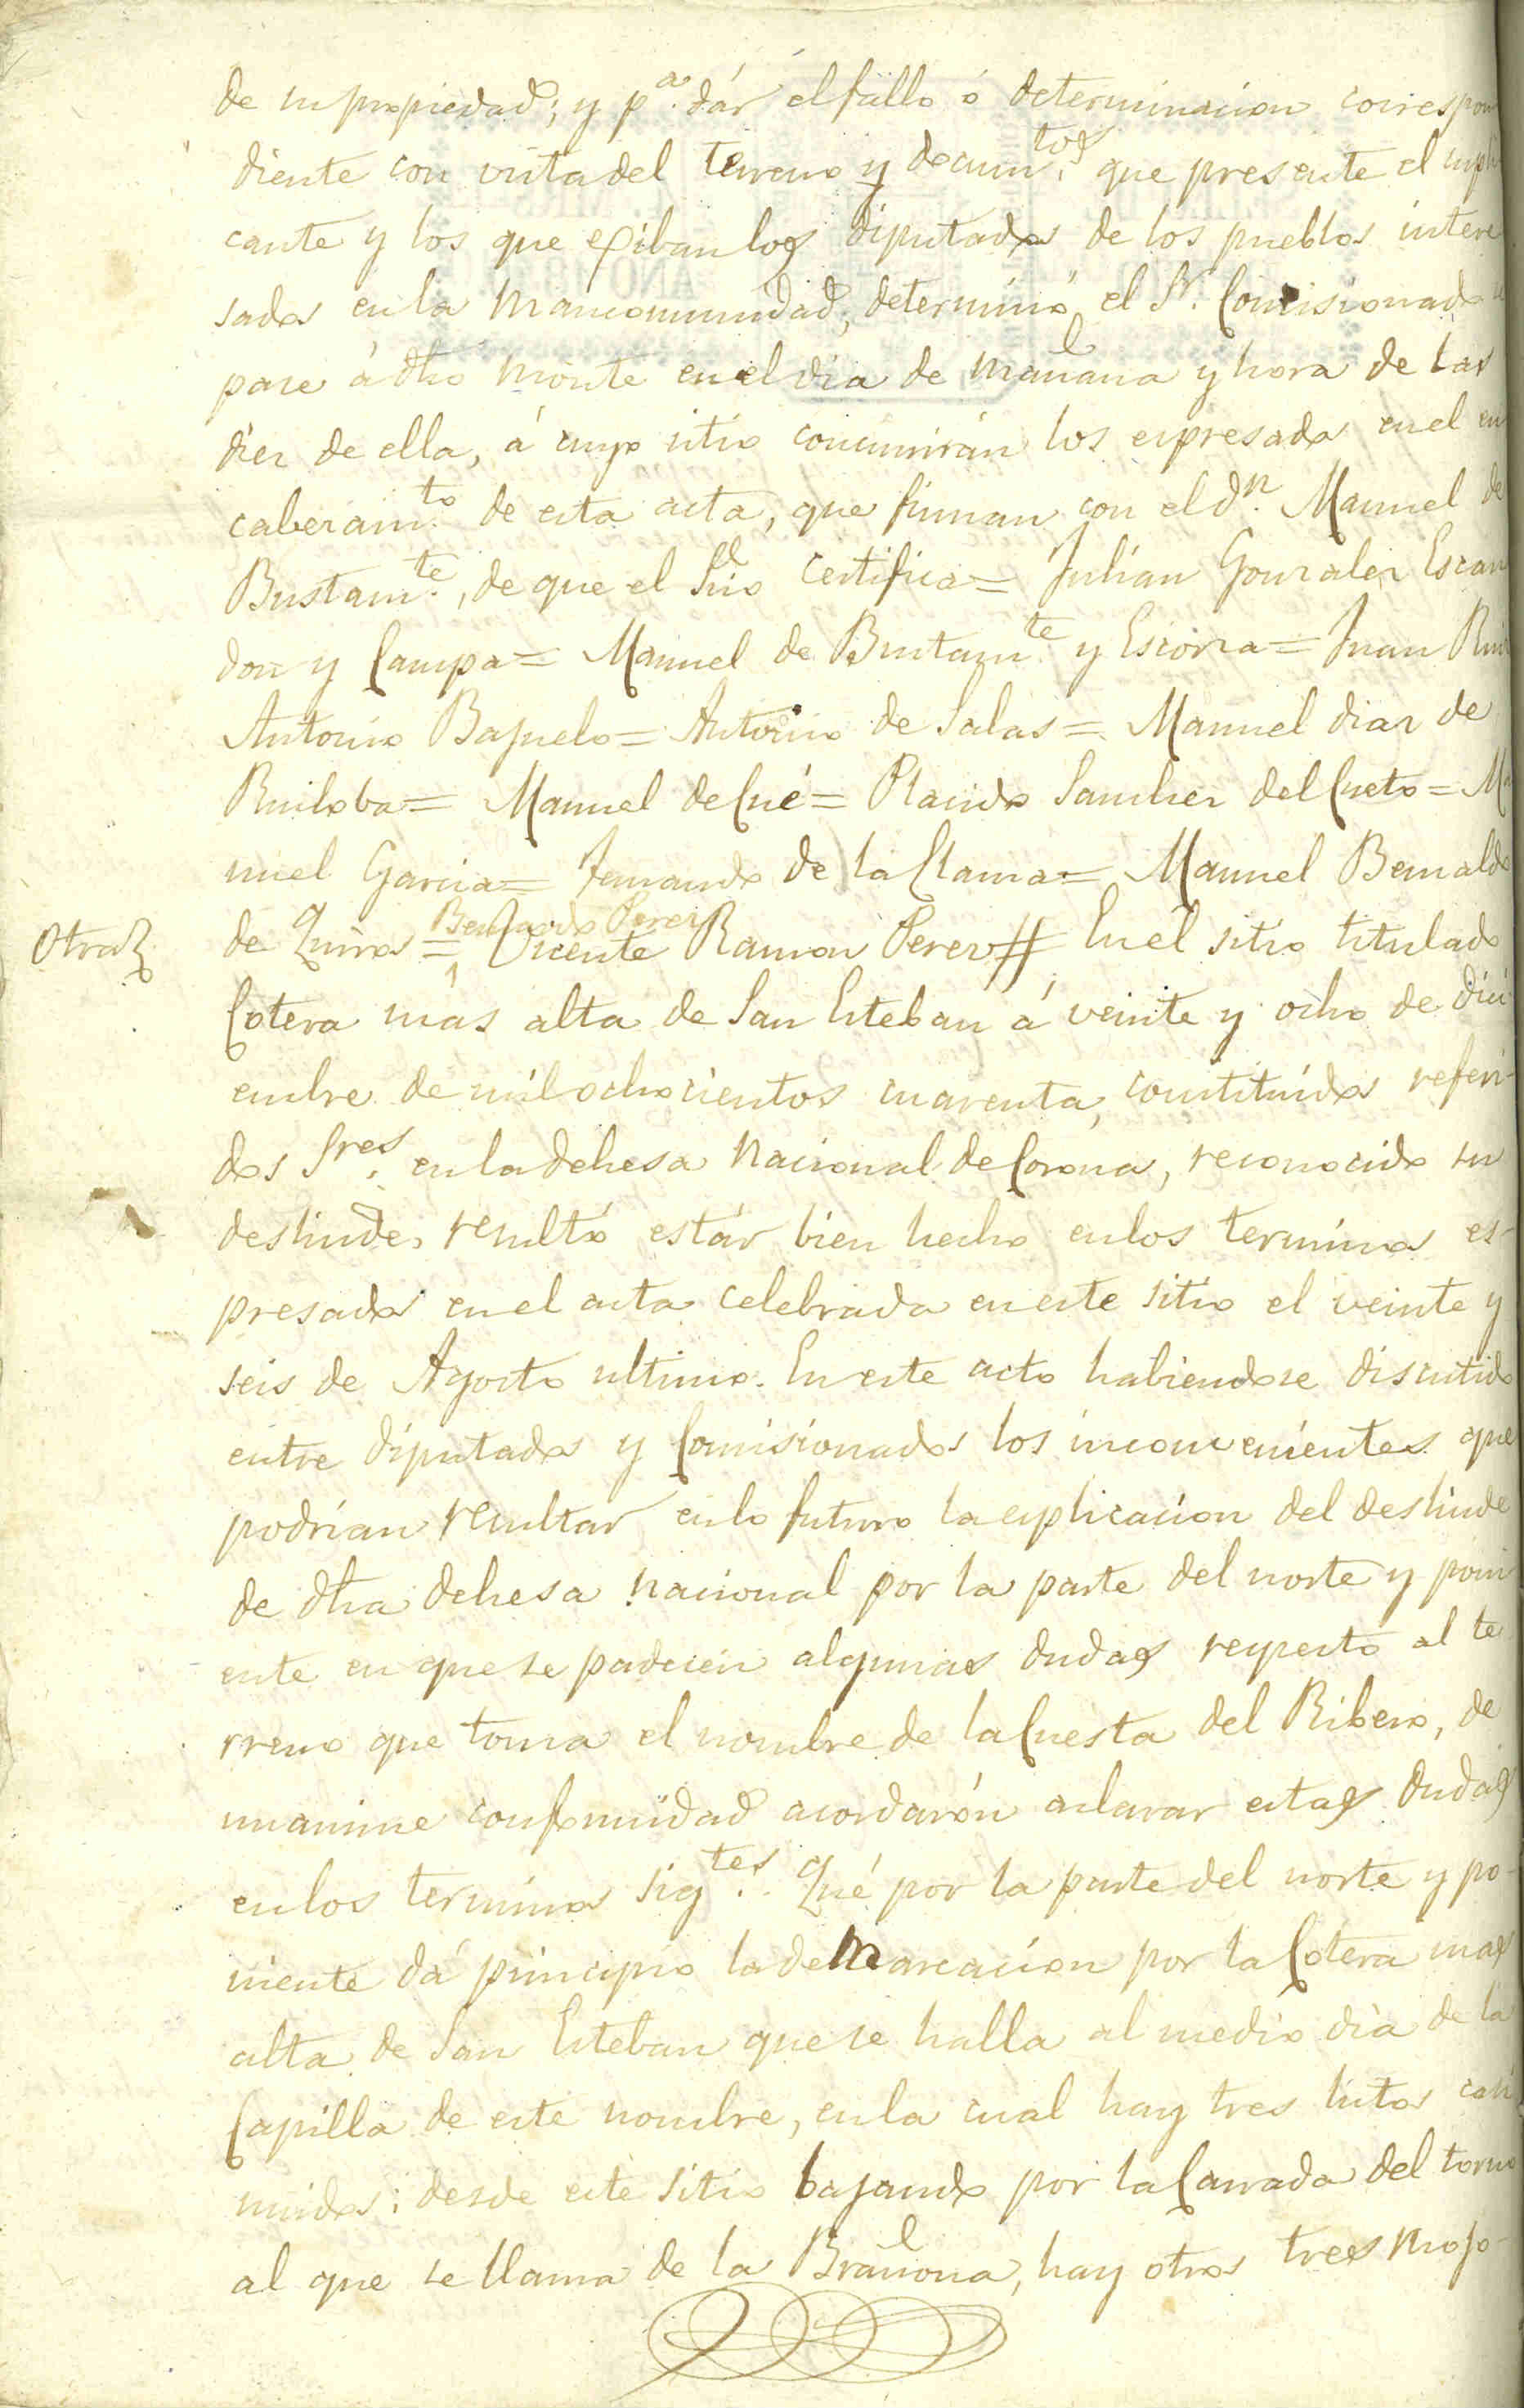 de su propiedad; y p.ª dár el fallo ó determinacion correspon
diente con vista del terreno y docum.tos que presente el supli
cante y los que exiban los diputados de los pueblos intere
sados en la mancomunidad, determinó el Sr. Comisionado se
pase á dho monte en el dia de mañana y hora de las
diez de ella, á cuyo sitio concurrirán los espresados en el en
cabezam.to de esta acta, que firman con el Dn. Manuel de
Bustam.te, de que el Srio certifica = Julian Gonzalez Escan
don y Campa = Manuel de Bustam.te y Escorza = Juan Ruiz
Antonio Bajuelo = Antonio de Salas = Manuel diaz de
Ruiloba = Manuel de Cué = Placido Sanchez del Cueto = Ma
nuel Garcia = Fernando de la Llama = Manuel Bernaldo
Bernardo Perez
Otra
de Quiros = Vicente Ramon Perez # En el sitio titulado
Cotera más alta de San Esteban á veinte y ocho de dici
embre de mil ochocientos cuarenta, constituidos referi-
dos Sres. en la dehesa nacional de Corona, reconocido su
deslinde, resultó estár bien hecho en los terminos es-
presados en el acta celebrada en este sitio el veinte y
seis de Agosto ultimo. En este acto habiendose discutido
entre diputados y Comisionados los inconvenientes que
podrían resultar en lo futuro la esplicacion del deslinde
de dha dehesa nacional por la parte del norte y poni
ente en que se padecen algunas dudas respecto al te
rreno que toma el nombre de la Cuesta del Ribero, de
unanime conformidad acordarón aclarar estas dudas
en los terminos sig.tes Qué por la parte del norte y po-
niente dá principio la demarcacion por la Cotera mas
alta de San Esteban que se halla al medio dia de la
Capilla de este nombre, en la cual hay tres hitos con
nuidos: desde este sitio bajando por la Canrada del torno
al que se llama de la Brañona, hay otros tres mojo-